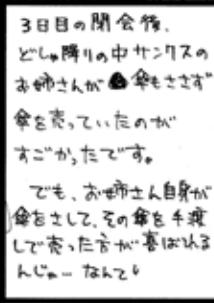 3日目の閉会後、
どしゃ降りの中サンクスの
お姉さんが傘もささず
傘を売っていたのが
すごかったです。
でも、お姉さん自身が
傘をさして、その傘を手渡
しで売った方が喜ばれる
んじゃ…なんて